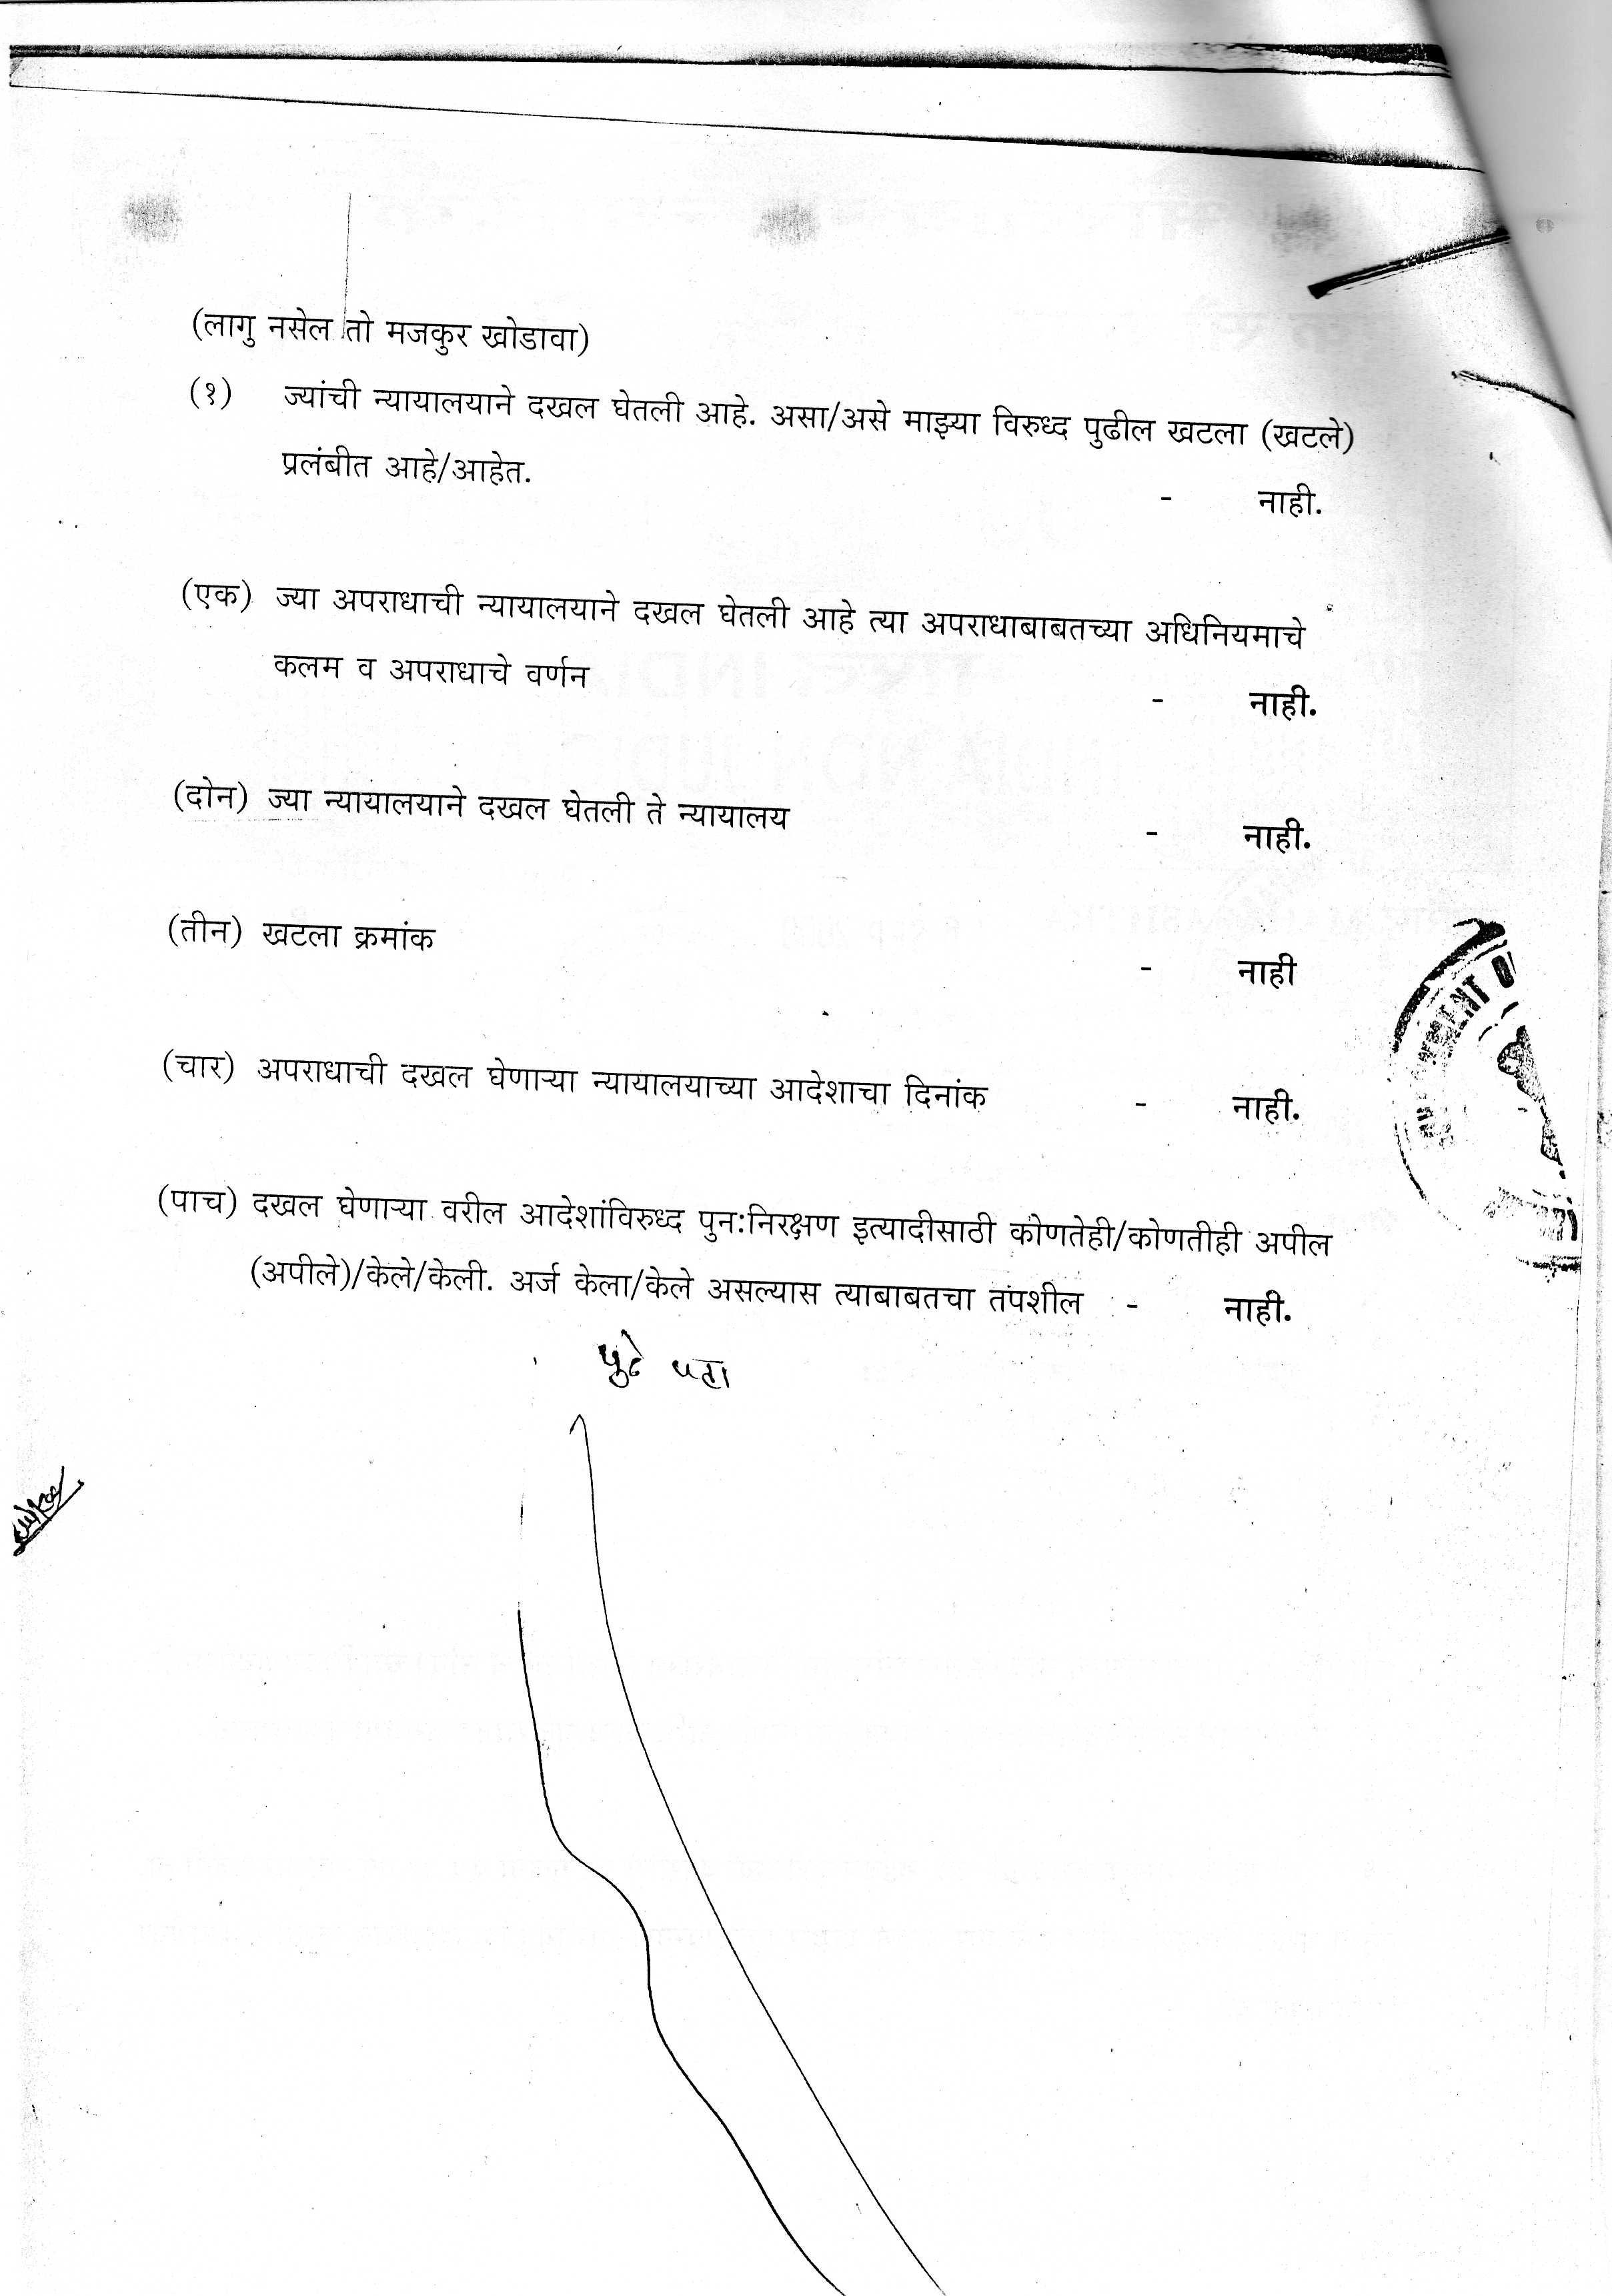 (लागु नसेल तो मजकुर खोडावा)
(१) ज्यांची न्यायालयाने दखल घेतली आहे. असा/असे माझ्या विरुध्द पुढील खटला (खटले)
प्रलंबीत आहे/आहेत. - नाही.
(एक) ज्या अपराधाची न्यायालयाने दखल घेतली आहे त्या अपराधाबाबतच्या अधिनियमाचे
कलम व अपराधाचे वर्णन - नाही.
(दोन) ज्या न्यायालयाने दखल घेतली ते न्यायालय - नाही.
(तीन) खटला क्रमांक - नाही
(चार) अपराधाची दखल घेणाऱ्या न्यायालयाच्या आदेशाचा दिनांक - नाही.
(पाच) दखल घेणाऱ्या वरील आदेशांविरुध्द पुन:निरक्षण इत्यादीसाठी कोणतेही/कोणतीही अपील
(अपीले)/केले/केली. अर्ज केला/केले असल्यास त्याबाबतचा तपशील - नाही.
पुढे पहा